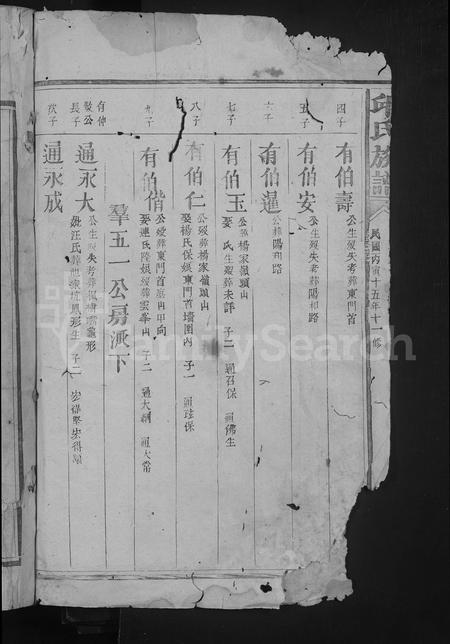 邱氏族譜
民國丙寅十五年十一修
四子 有伯壽 公生歿失考葬東門首
五子 有伯安 公生歿失考葬陽和路
六子 有伯暹 公葬陽和路
七子 有伯玉 公葬楊家嶺頭山
娶 氏生歿葬未詳 子二 通召保 通佛生
八子 有伯仁 公歿葬楊家嶺頭山
娶楊氏保娘東門首墻圍內 子一 通珪保
九子 有伯偕 公歿葬東門首 山甲向
娶連氏 娘歿葬雲峯山 子二 通大綱 通大常
羣五一公房派下
有伸
公
長子 通永大 公生歿失考葬 形
妣汪氏葬 鳳形生 子二
次子 通永成
FamilySearch